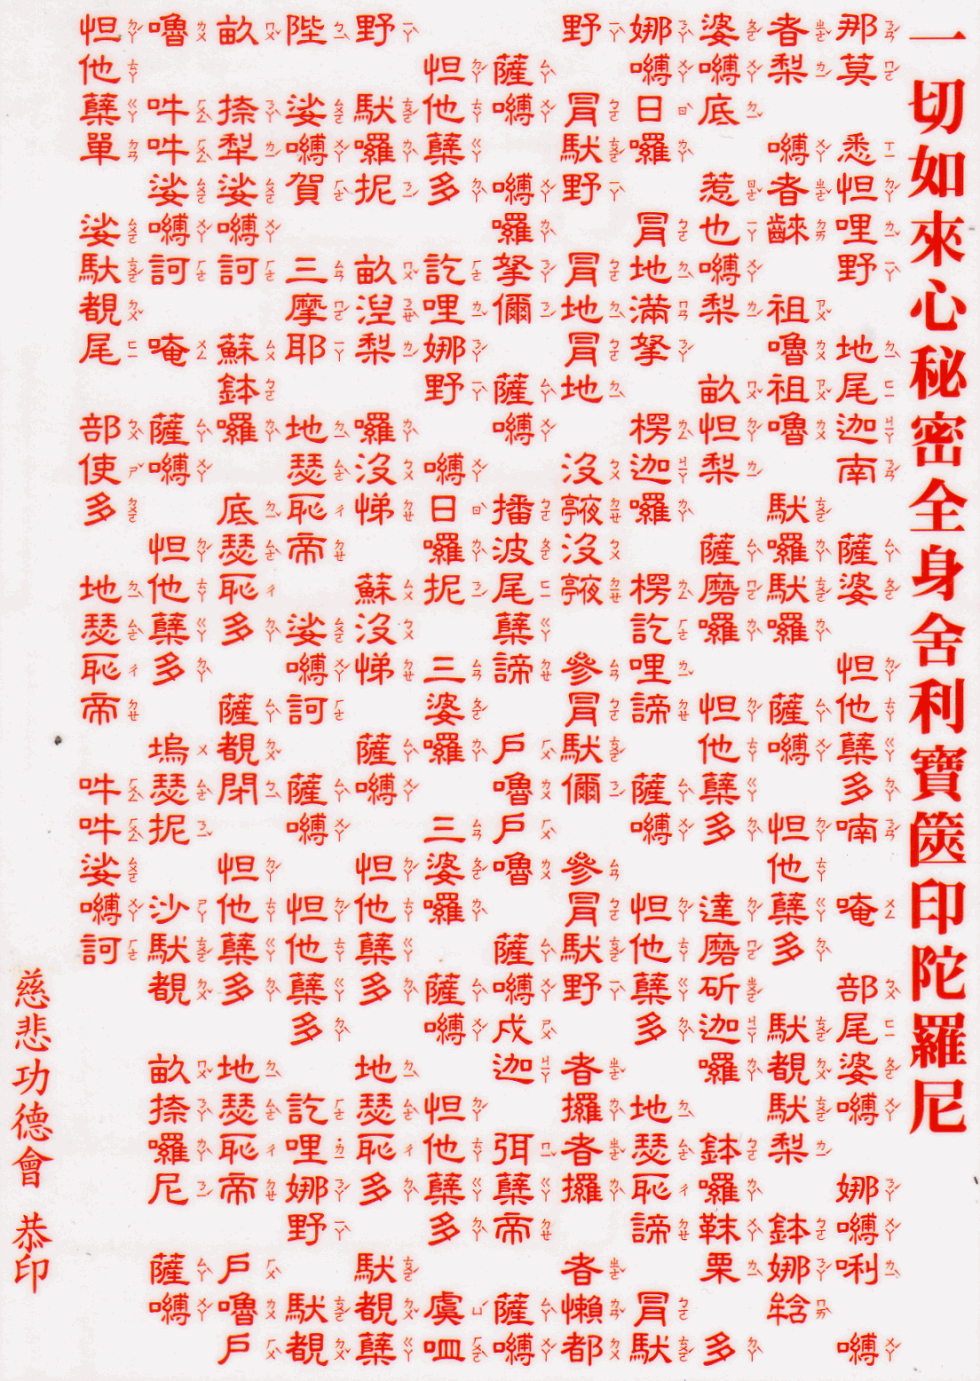 一切如來心秘密全身舍利寶篋印陀羅尼
那莫 悉怛哩野 地尾迦南 薩婆 怛他蘗多喃 唵 部尾婆嚩 娜嚩唎 嚩
者梨 嚩者𪘨 祖嚕祖嚕 馱囉馱囉 薩嚩 怛他蘗多 馱覩馱梨 鉢娜𤚥
婆嚩底 惹也嚩梨 畝怛梨 薩磨囉 怛他蘗多 達磨斫迦囉 鉢囉靺栗多
娜嚩日囉 冐地滿拏 楞迦囉 楞訖哩諦 薩嚩 怛他蘗多 地瑟恥諦 冐馱
野 冐馱野 冐地冐地 沒𠆙沒𠆙 參冐馱儞 參冐馱野 者攞者攞 者懶都
薩嚩 嚩囉拏儞 薩嚩 播波尾蘗諦 戶嚕戶嚕 薩嚩戍迦 弭蘗帝 薩嚩
怛他蘗多 訖哩娜野 嚩日囉抳 三婆囉 三婆囉 薩嚩 怛他蘗多 虞呬
野 馱囉抳 畝涅梨 囉沒悌 蘇沒悌 薩嚩 怛他蘗多 地瑟恥多 馱覩蘗
陛 娑嚩賀 三摩耶 地瑟恥帝 娑嚩訶 薩嚩 怛他蘗多 訖哩娜野 馱覩
畝捺犁娑嚩訶 蘇鉢囉 底瑟恥多 薩覩閉 怛他蘗多 地瑟恥帝 戶嚕戶
嚕 吽吽娑嚩訶 唵 薩嚩 怛他蘗多 塢瑟抳 沙馱覩 畝捺囉尼 薩嚩
怛他蘗單 娑馱覩尾 部使多 地瑟恥帝 吽吽娑嚩訶
慈悲功德會 恭印